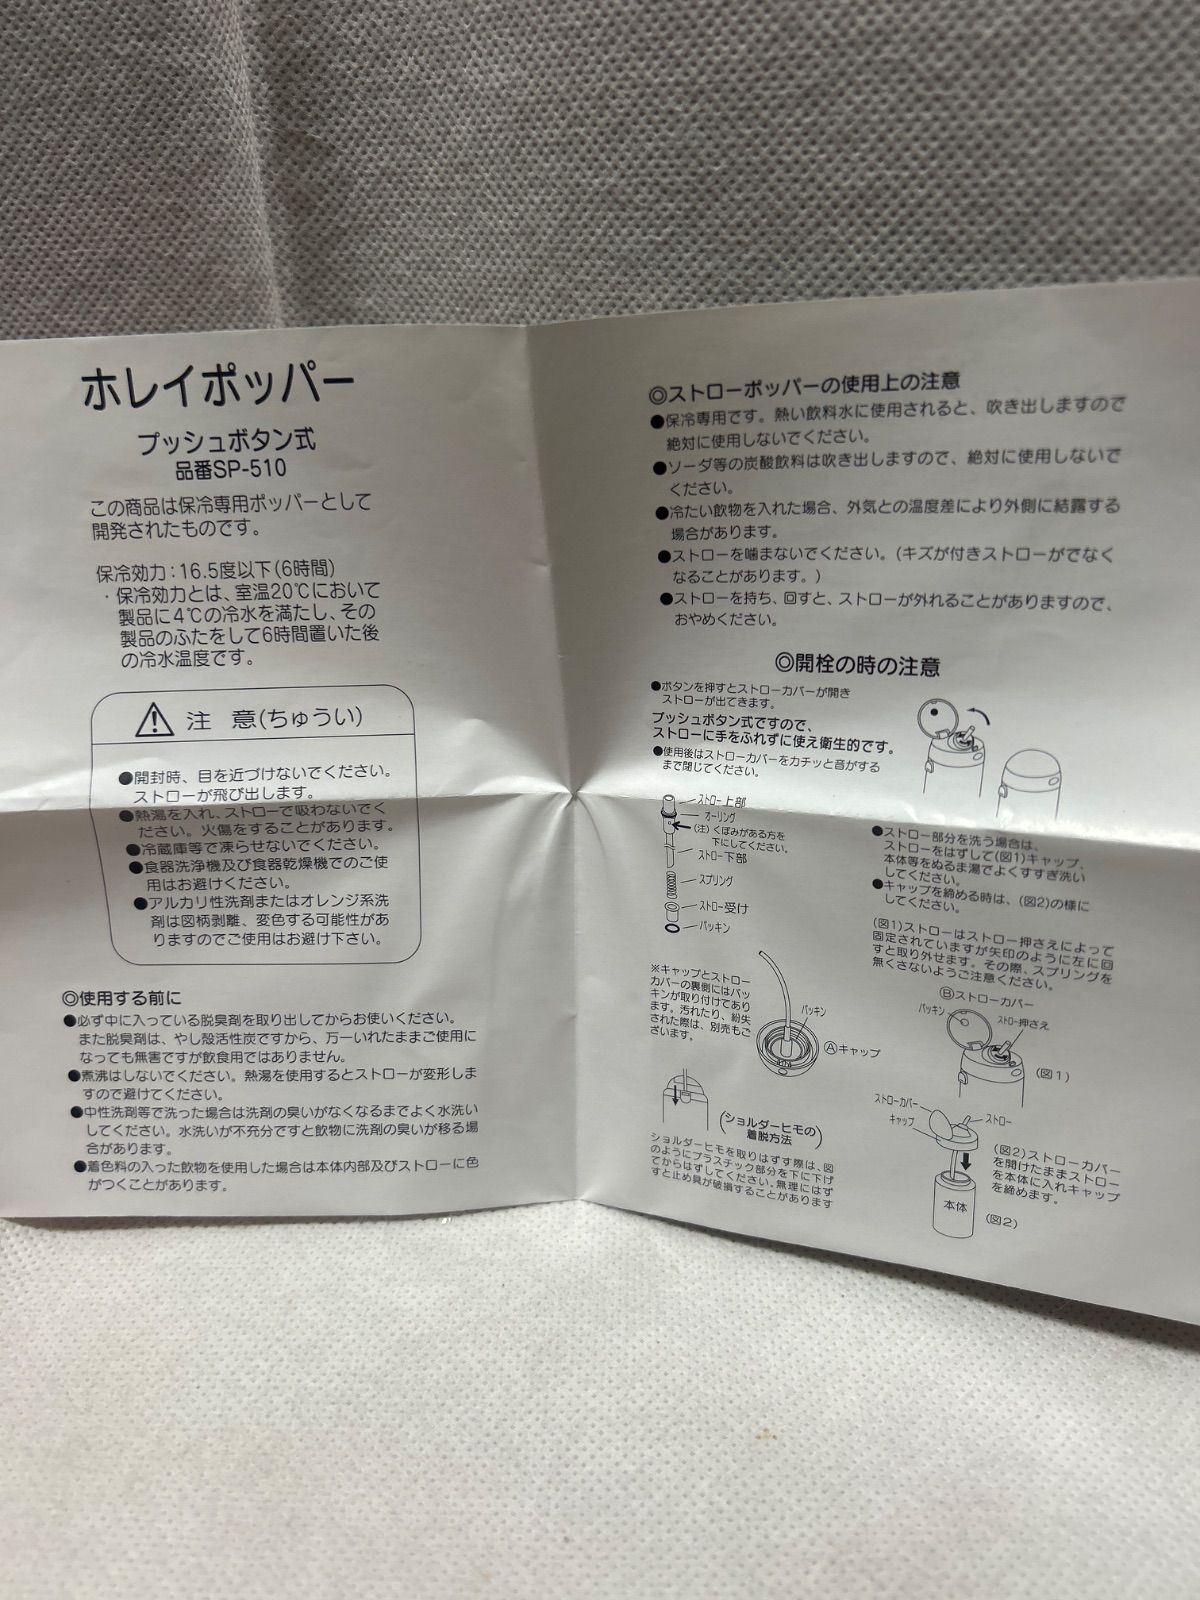 ホレイポッパー
プッシュボタン式
品番SP-510
この商品は保冷専用ポッパーとして
開発されたものです。
保冷効力：16.5度以下(6時間)
・保冷効力とは、室温20℃において
製品に4℃の冷水を満たし、その
製品のふたをして6時間置いた後
の冷水温度です。
注 意(ちゅうい)
●開封時、目を近づけないでください。
ストローが飛び出します。
●熱湯を入れ、ストローで吸わないでく
ださい。火傷をすることがあります。
●冷蔵庫等で凍らせないでください。
●食器洗浄機及び食器乾燥機でのご使
用はお避けください。
●アルカリ性洗剤またはオレンジ系洗
剤は図柄剥離、変色する可能性があ
りますのでご使用はお避け下さい。
◎使用する前に
●必ず中に入っている脱臭剤を取り出してからお使いください。
また脱臭剤は、やし殻活性炭ですから、万一いれたままご使用に
なっても無害ですが飲食用ではありません。
●煮沸はしないでください。熱湯を使用するとストローが変形しま
すので避けてください。
●中性洗剤等で洗った場合は洗剤の臭いがなくなるまでよく水洗い
してください。水洗いが不充分ですと飲物に洗剤の臭いが移る場
合があります。
●着色料の入った飲物を使用した場合は本体内部及びストローに色
がつくことがあります。
◎ストローポッパーの使用上の注意
●保冷専用です。熱い飲料水に使用されると、吹き出しますので
絶対に使用しないでください。
●ソーダ等の炭酸飲料は吹き出しますので、絶対に使用しないで
ください。
●冷たい飲物を入れた場合、外気との温度差により外側に結露する
場合があります。
●ストローを噛まないでください。(キズが付きストローがでなく
なることがあります。)
●ストローを持ち、回すと、ストローが外れることがありますので、
おやめください。
◎開栓の時の注意
●ボタンを押すとストローカバーが開き
ストローが出てきます。
プッシュボタン式ですので、
ストローに手をふれずに使え衛生的です。
●使用後はストローカバーをカチッと音がする
まで閉じてください。
ストロー上部
オーリング
(注)くぼみがある方を
下にしてください。
ストロー下部
スプリング
ストロー受け
パッキン
※キャップとストロー
カバーの裏側にはパッ
キンが取り付けてあり
ます。汚れたり、紛失
された際は、別売もご
ざいます。
パッキン
Ⓐキャップ
(ショルダーヒモの
着脱方法)
ショルダーヒモを取りはずす際は、図
のようにプラスチック部分を下に下げ
てからはずしてください。無理にはず
すと止め具が破損することがあります
●ストロー部分を洗う場合は、
ストローをはずして(図1)キャップ、
本体等をぬるま湯でよくすすぎ洗い
してください。
●キャップを締める時は、(図2)の様に
してください。
(図1)ストローはストロー押さえによって
固定されていますが矢印のように左に回
すと取り外せます。その際、スプリングを
無くさないようご注意ください。
Ⓑストローカバー
パッキン
ストロー押さえ
(図1)
ストローカバー
キャップ
ストロー
本体
(図2)
(図2)ストローカバー
を開けたままストロー
を本体に入れキャップ
を締めます。